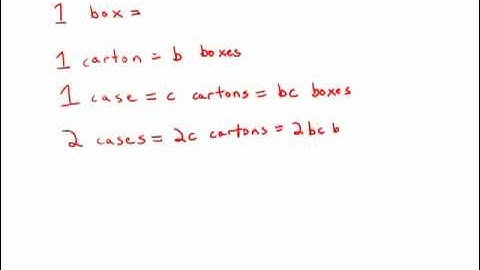 1 box =
1 carton = b boxes
1 case = c cartons = bc boxes
2 cases = 2c cartons = 2bc b